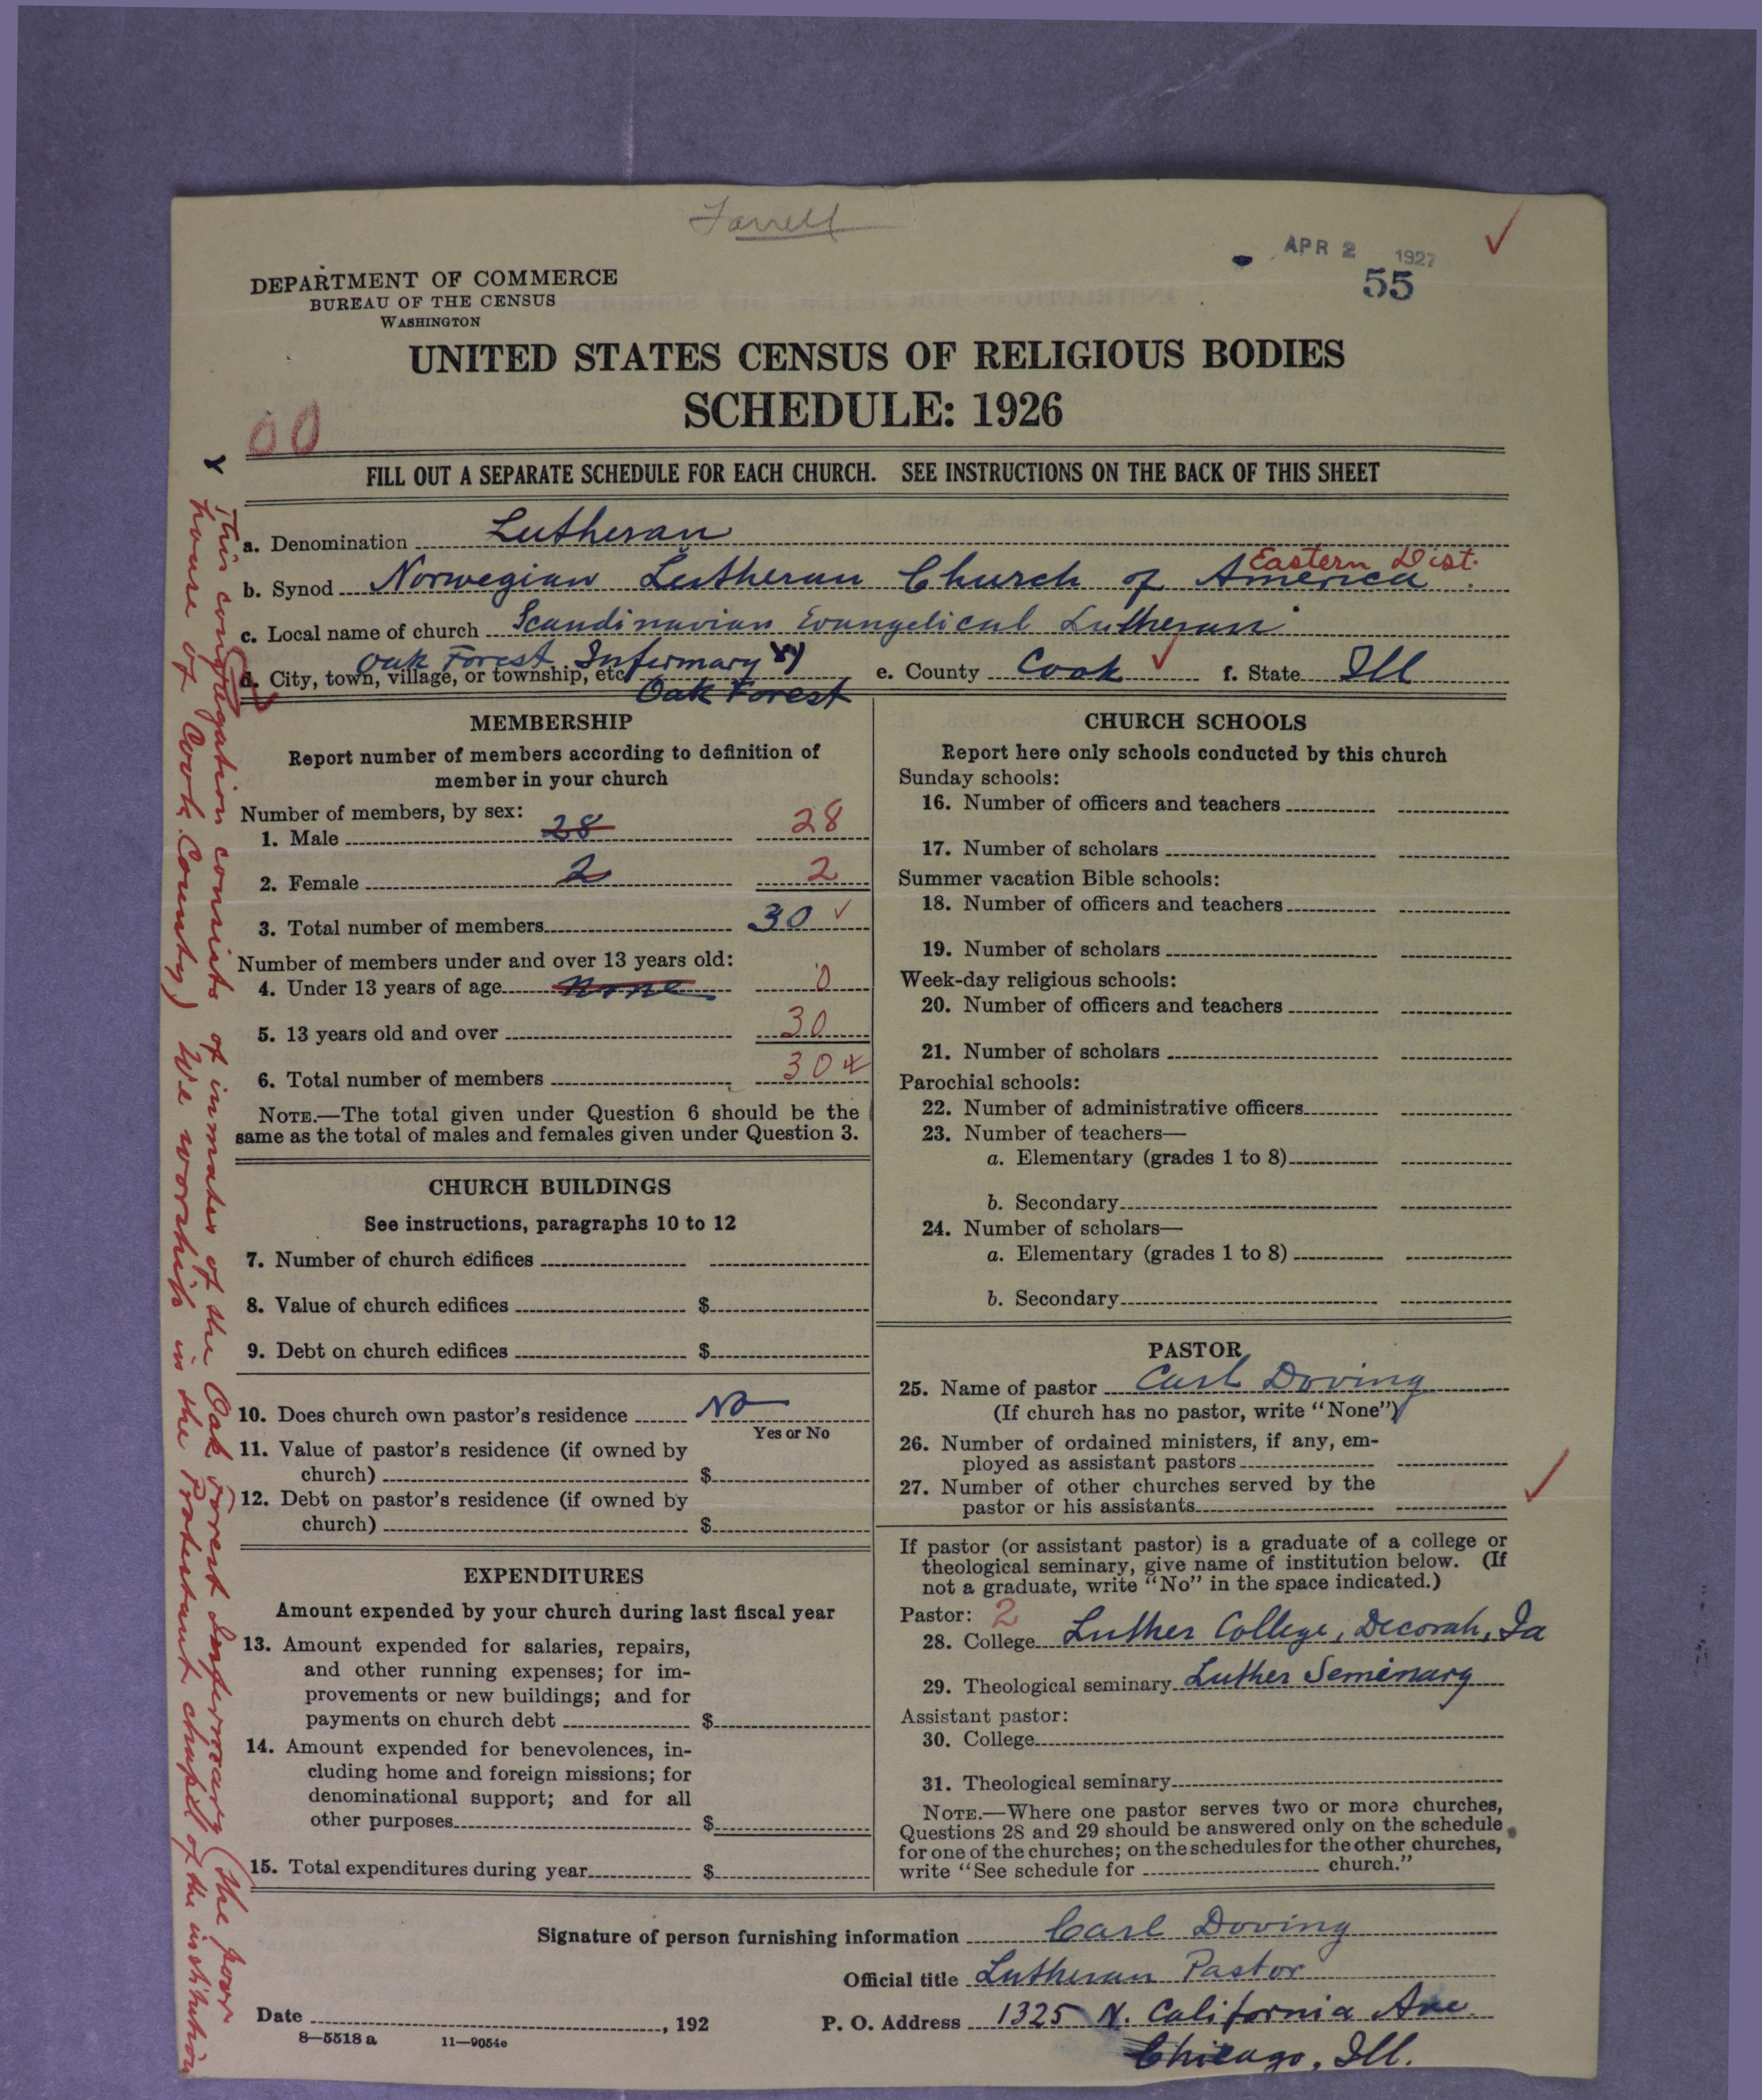 Farrell
APR 2 1927
55
DEPARTMENT OF COMMERCE
BUREAU OF THE CENSUS
WASHINGTON
UNITED STATES CENSUS OF RELIGIOUS BODIES
SCHEDULE: 1926
00
FILL OUT A SEPARATE SCHEDULE FOR EACH CHURCH. SEE INSTRUCTIONS ON THE BACK OF THIS SHEET
a. Denomination Lutheran
Eastern Dist.
b. Synod Norwegian Lutheran Church of America
c. Local name of church Scandinavian Evangelical Lutheran
d. City, town, village, or township, etc. Oak Forest Infirmary x) e. County Cook f. State Ill
Oak Forest
MEMBERSHIP
Report number of members according to definition of
member in your church
Number of members, by sex:
1. Male 28 28
2. Female 2 2
3. Total number of members 30 ✓
Number of members under and over 13 years old:
4. Under 13 years of age None 0
5. 13 years old and over 30
6. Total number of members 30
NOTE.—The total given under Question 6 should be the
same as the total of males and females given under Question 3.
CHURCH BUILDINGS
See instructions, paragraphs 10 to 12
7. Number of church edifices
8. Value of church edifices $
9. Debt on church edifices $
10. Does church own pastor's residence No
Yes or No
11. Value of pastor's residence (if owned by
church) $
12. Debt on pastor's residence (if owned by
church) $
EXPENDITURES
Amount expended by your church during last fiscal year
13. Amount expended for salaries, repairs,
and other running expenses; for im-
provements or new buildings; and for
payments on church debt $
14. Amount expended for benevolences, in-
cluding home and foreign missions; for
denominational support; and for all
other purposes $
15. Total expenditures during year $
CHURCH SCHOOLS
Report here only schools conducted by this church
Sunday schools:
16. Number of officers and teachers
17. Number of scholars
Summer vacation Bible schools:
18. Number of officers and teachers
19. Number of scholars
Week-day religious schools:
20. Number of officers and teachers
21. Number of scholars
Parochial schools:
22. Number of administrative officers
23. Number of teachers—
a. Elementary (grades 1 to 8)
b. Secondary
24. Number of scholars—
a. Elementary (grades 1 to 8)
b. Secondary
PASTOR
25. Name of pastor Carl Doving
(If church has no pastor, write "None")
26. Number of ordained ministers, if any, em-
ployed as assistant pastors
27. Number of other churches served by the
pastor or his assistants
If pastor (or assistant pastor) is a graduate of a college or
theological seminary, give name of institution below. (If
not a graduate, write "No" in the space indicated.)
Pastor: 2
28. College Luther College, Decorah, Ia
29. Theological seminary Luther Seminary
Assistant pastor:
30. College
31. Theological seminary
NOTE.—Where one pastor serves two or more churches,
Questions 28 and 29 should be answered only on the schedule
for one of the churches; on the schedules for the other churches,
write "See schedule for church."
Signature of person furnishing information Carl Doving
Official title Lutheran Pastor
Date , 192 P. O. Address 1325 N. California Ave.
8—5518 a 11—9054e
Chicago, Ill.
x This congregation consists of inmates of the Oak Forest Infirmary (the poor
house of Cook County) We worship in the Protestant chapel of the institution